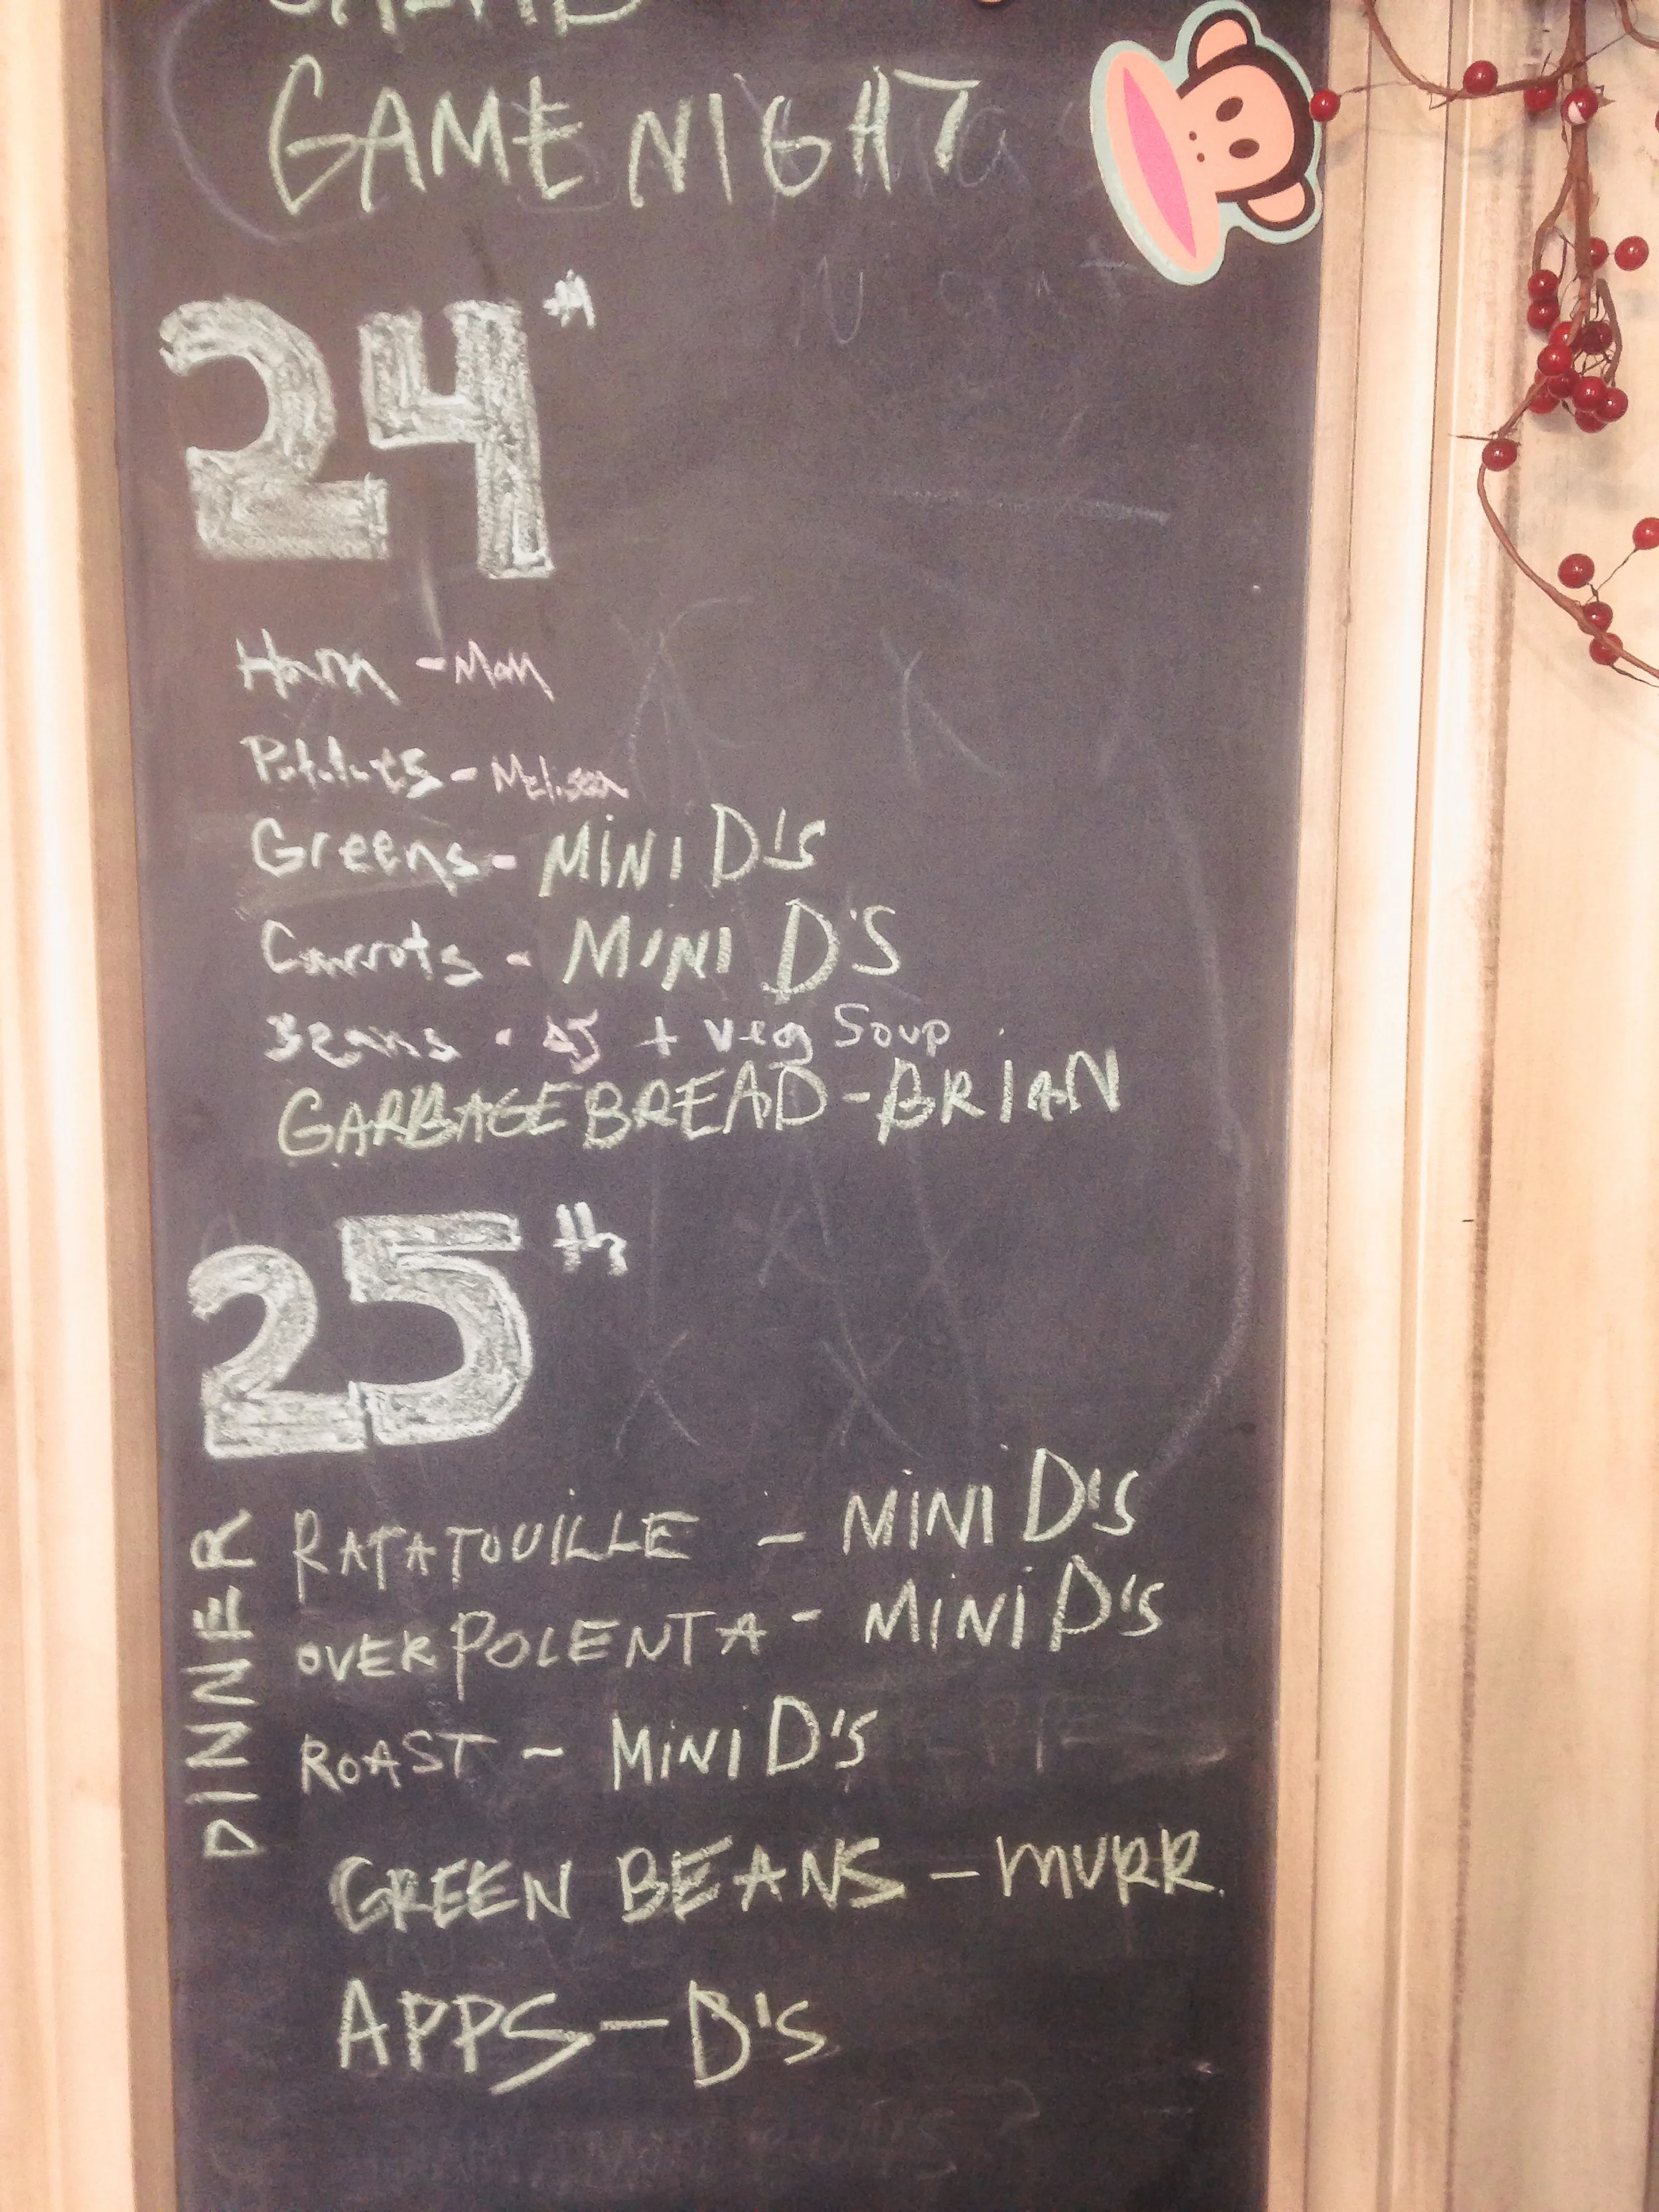 SALAD
GAME NIGHT
24th
Ham - Mom
Potatoes - Melissa
Greens - MINI D'S
Carrots - MINI D'S
Beans - AJ + Veg Soup
GARBAGE BREAD - BRIAN
25th
DINNER
RATATOUILLE - MINI D'S
OVER POLENTA - MINI D'S
ROAST - MINI D'S
GREEN BEANS - MURR.
APPS - D'S